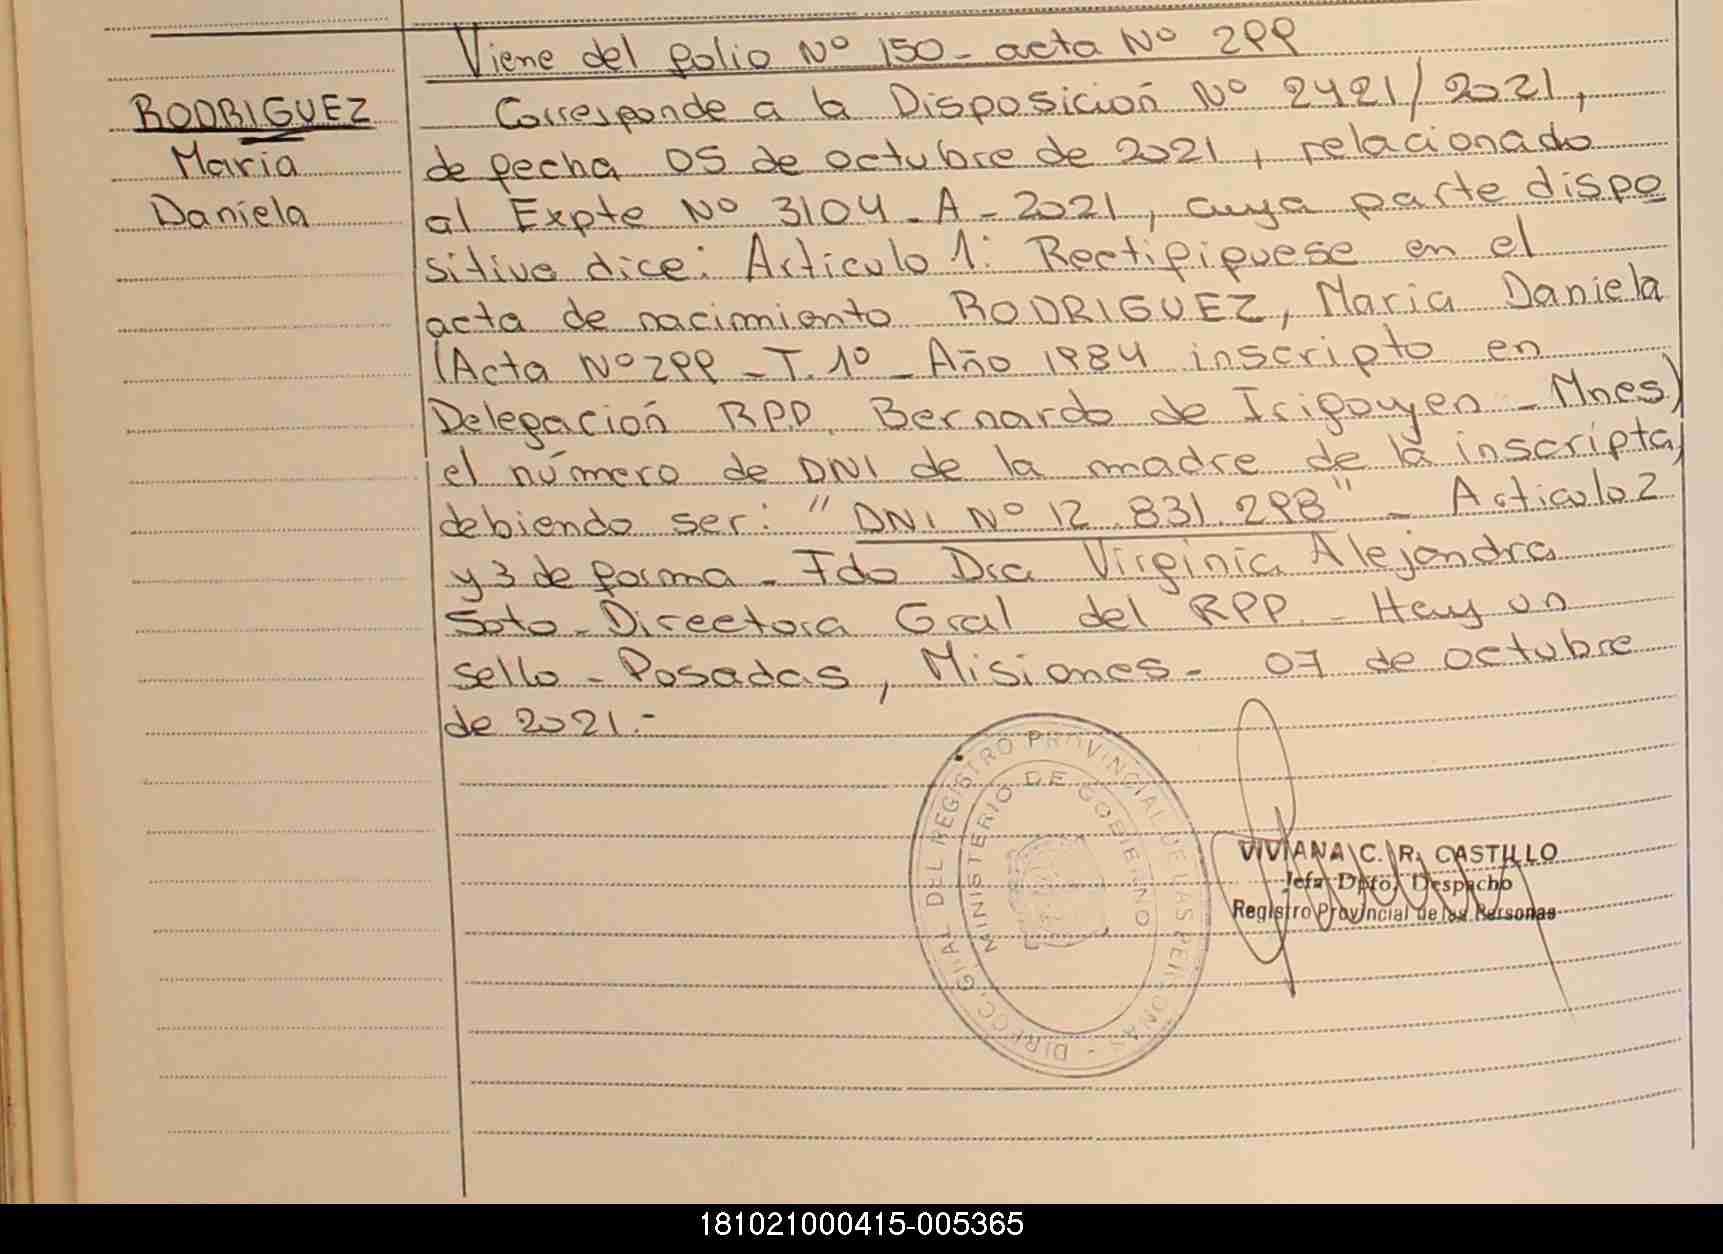 Viene del folio Nº 150 - acta Nº 299
RODRIGUEZ
Maria
Daniela
Corresponde a la Disposición Nº 2421/2021,
de fecha 05 de octubre de 2021, relacionado
al Expte Nº 3104 - A - 2021, cuya parte dispo
sitiva dice: Articulo 1: Rectifiquese en el
acta de nacimiento RODRIGUEZ, Maria Daniela
(Acta Nº 299 - T. 1º - Año 1984 inscripto en
Delegación RPP. Bernardo de Irigoyen - Mnes)
el número de DNI de la madre de la inscripta,
debiendo ser: "DNI Nº 12.831.298" - Articulo 2
y 3 de forma - Fdo Dra Virginia Alejandra
Soto - Directora Gral del RPP. - Hay un
sello - Posadas, Misiones - 07 de octubre
de 2021.-
DIRECC. GRAL DEL REGISTRO PROVINCIAL DE LAS PERSONAS -
MINISTERIO DE GOBIERNO
VIVIANA C. R. CASTILLO
Jefa Dpto. Despacho
Registro Provincial de las Personas
181021000415-005365